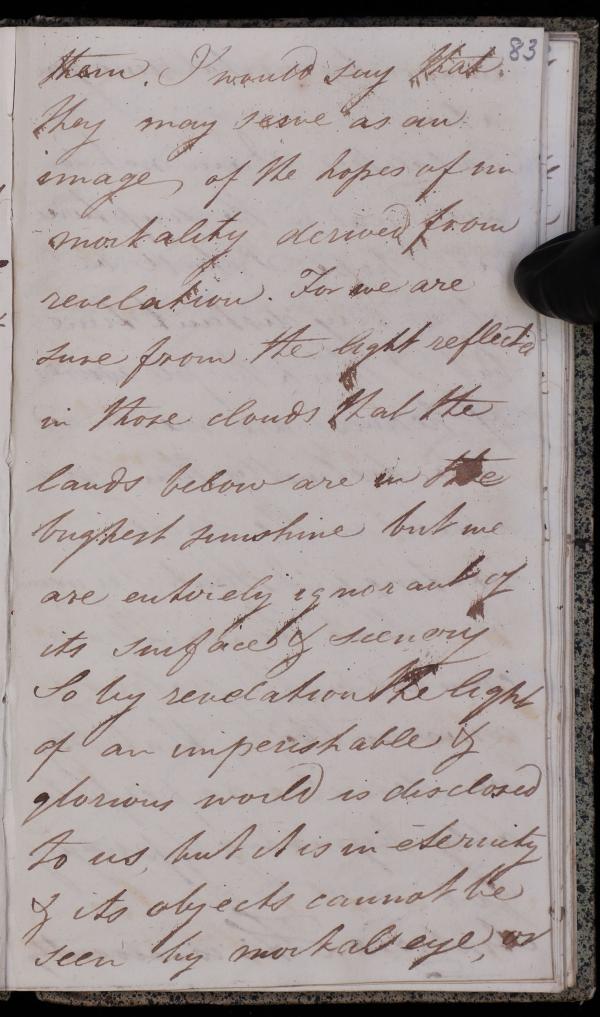 83
them. I would say that
they may serve as an
image, of the hopes of im
mortality derived from
revelation. For we are
sure from the light reflected
in those clouds that the
lands below are in the
brighest sunshine but we
are entirely ignorant of
its surface & scenery
So by revelation the light
of an imperishable &
glorious world is disclosed
to us, but it is in eternity
& its objects cannot be
seen by mortal eye, or